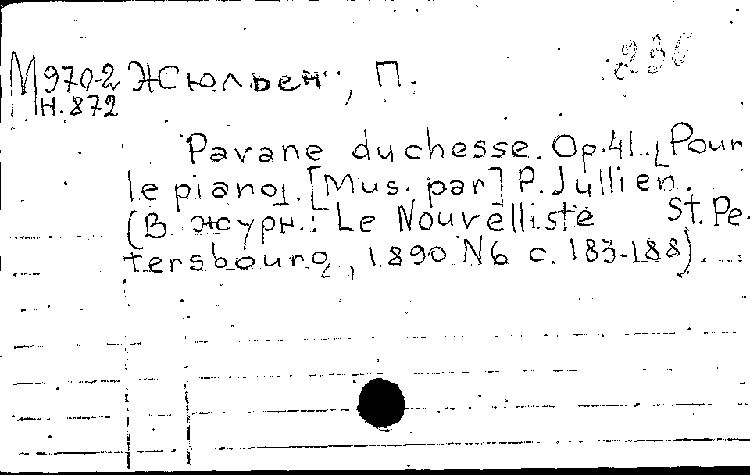 М 970-2 Жюльен, П.
Н. 872
Pavane duchesse. Op. 41. [Pour
le piano]. [Mus. par] P. Jullien.
(В журн.: Le Nouvelliste St. Pe-
tersbourg, 1890 N6 с. 183-188).